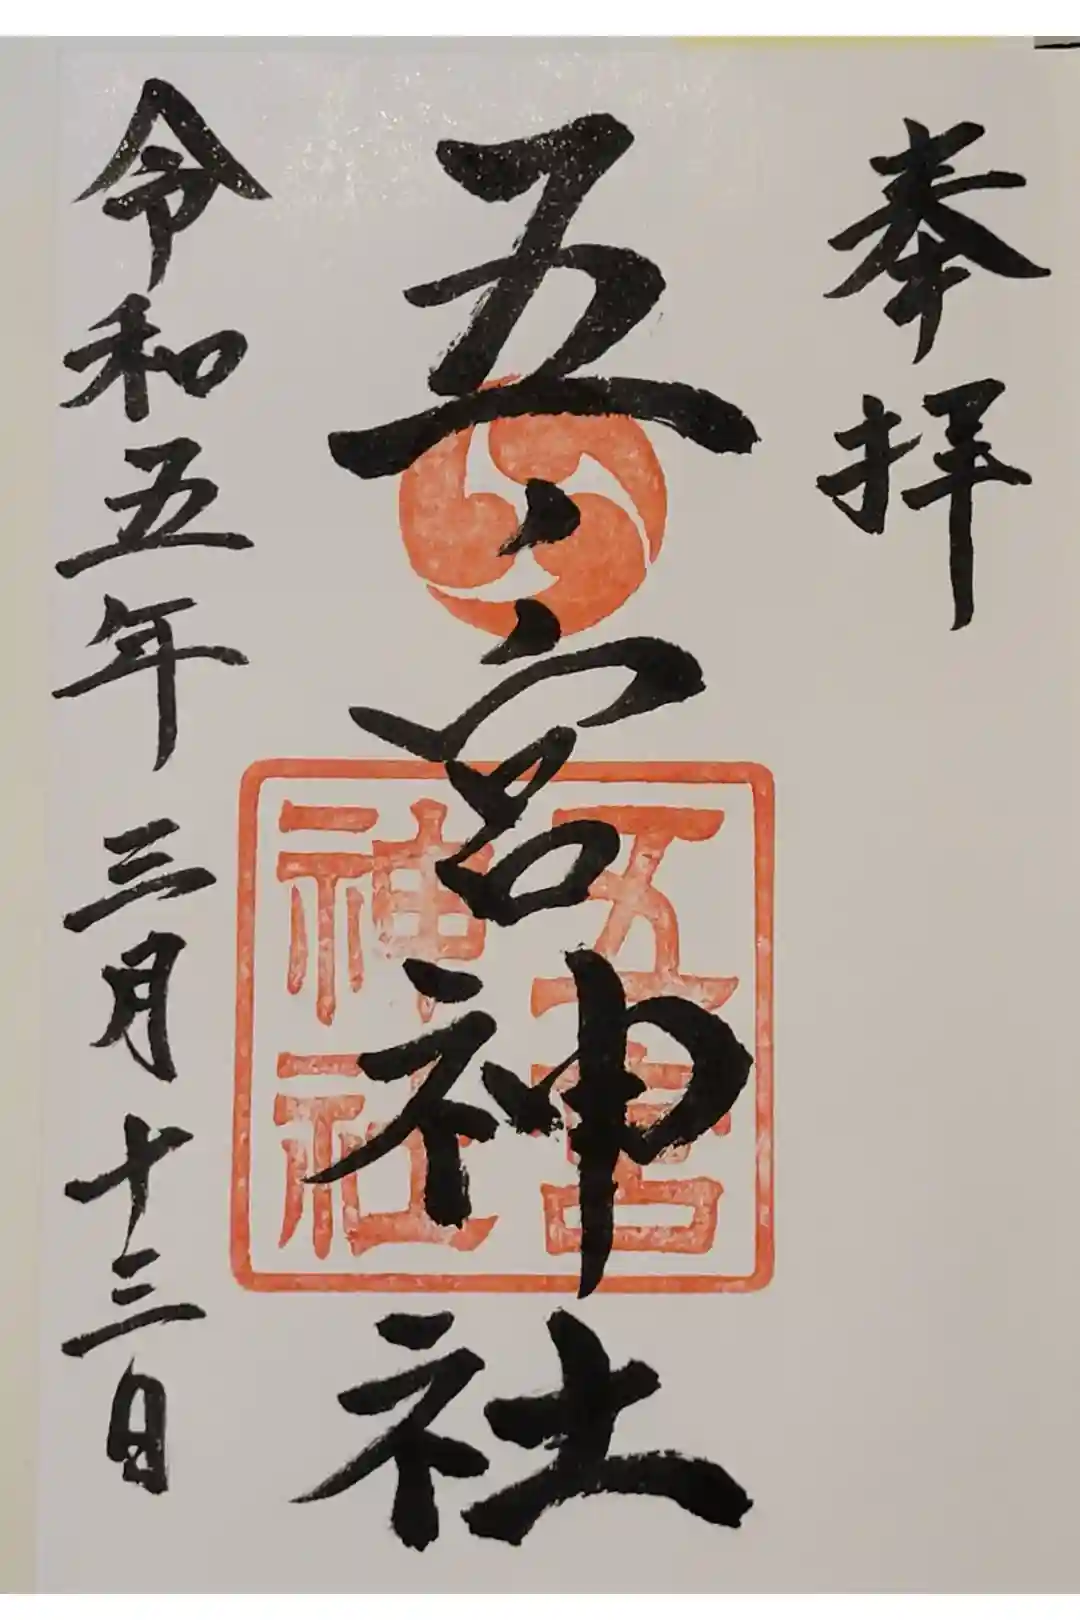 奉拝
五ノ宮神社
五宮
神社
令和五年三月十三日